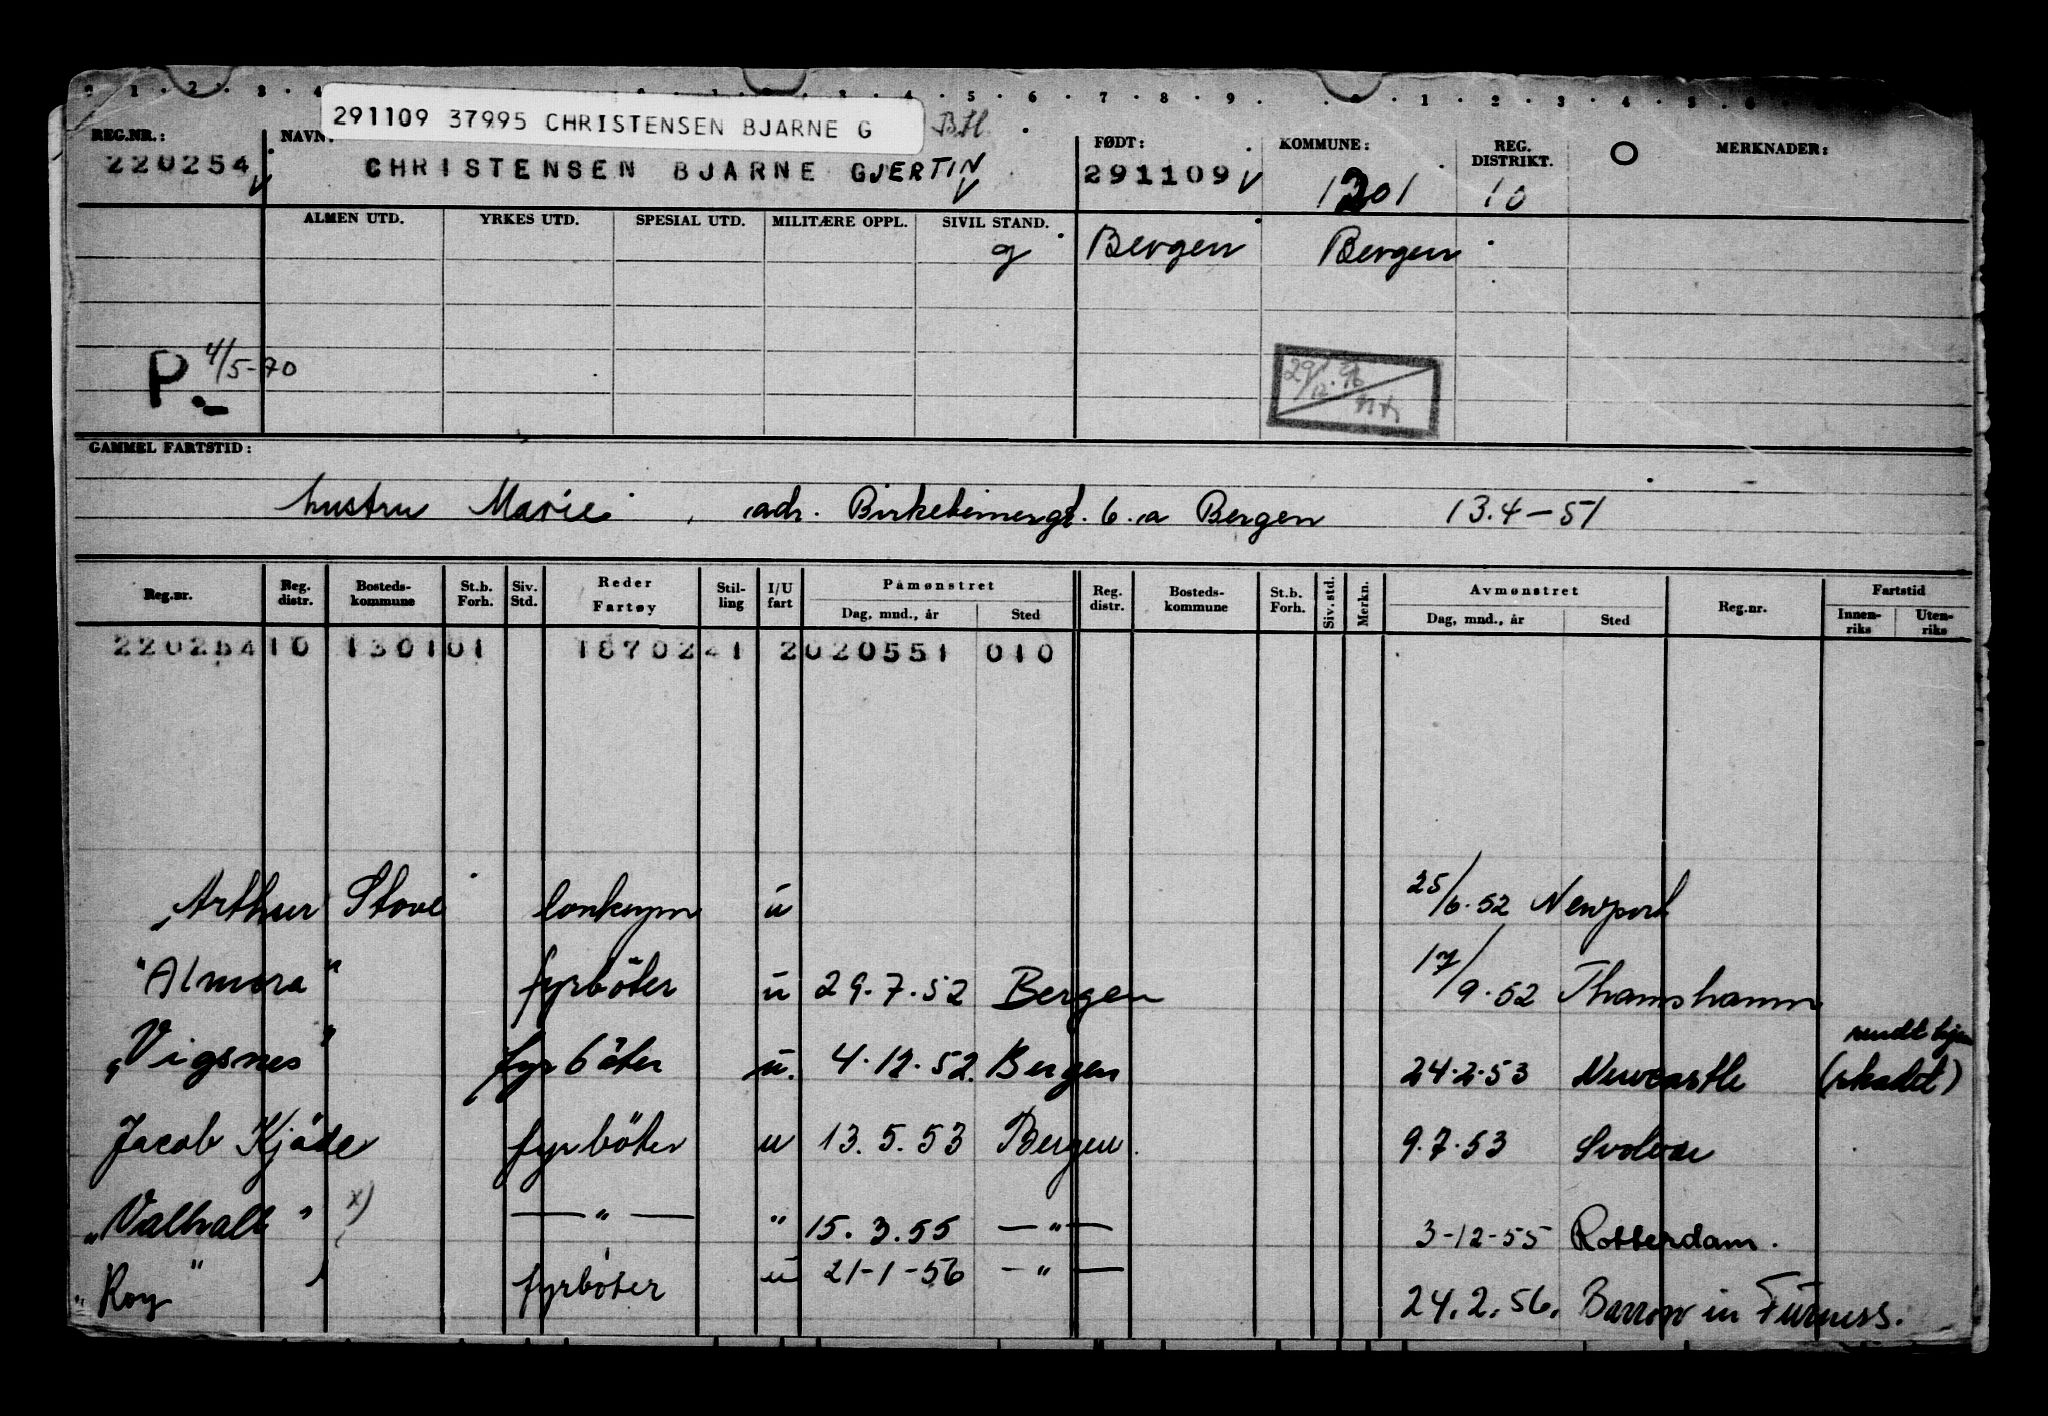 291109 37995 CHRISTENSEN BJARNE G
REG.NR.: NAVN: FØDT: KOMMUNE: REG. DISTRIKT. MERKNADER:
220254 CHRISTENSEN BJARNE GJERTIN 291109 1301 10
ALMEN UTD. YRKES UTD. SPESIAL UTD. MILITÆRE OPPL. SIVIL STAND.
g Bergen Bergen
P.- 4/5-70
GAMMEL FARTSTID:
hustru Marie, adr. Birkebeinergt. 6.a Bergen 13.4-51
Reg.nr. Reg. distr. Bosteds-kommune St.b. Forh. Siv. Std. Reder Fartøy Stil-ling I/U fart Påmønstret Reg. distr. Bosteds-kommune St.b. Forh. Siv. std. Merkn. Avmønstret Reg.nr. Fartstid
Dag, mnd., år Sted Dag, mnd., år Sted Innen-riks Uten-riks
220254 10 1301 01 1870241 2 020551 010
Arthur Stove u 25/6.52 Newport
"Almora" fyrböter u 29.7.52 Bergen 17/9.52 Thamshamn
sendt hjem
"Vigsnes" fyrböter u. 4.12.52. Bergen 24.2.53 Newcastle (skadet)
Jacob Kjöde fyrböter u 13.5.53 Bergen. 9.7.53 Svolvær
"Valhall" x) —"— " 15.3.55 —"— 3-12-55 Rotterdam.
"Roy" fyrböter u 21-1-56 —"— 24.2.56. Barrow in Furness.